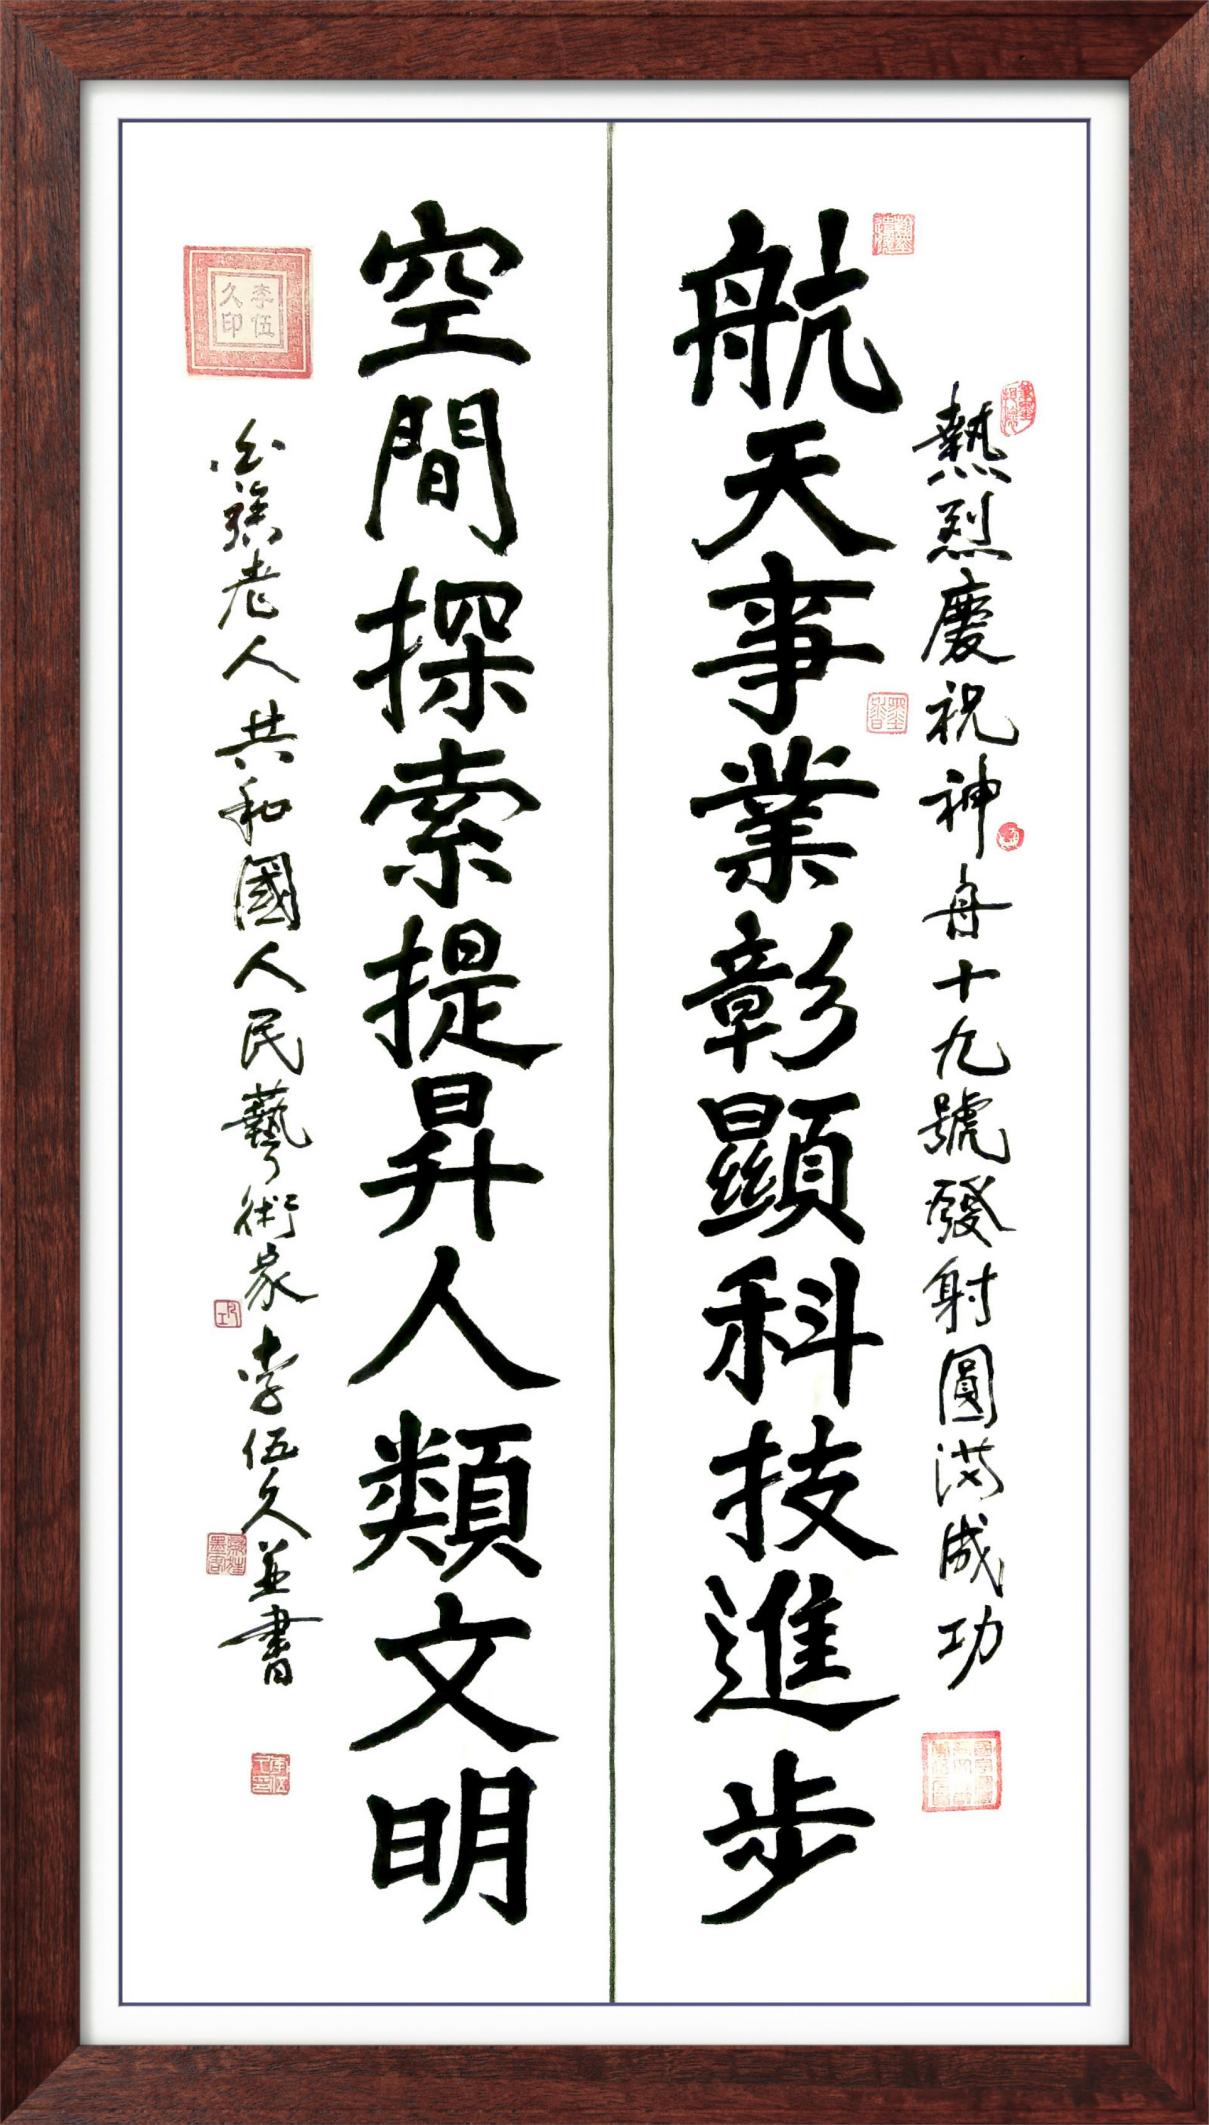 熱烈慶祝神舟十九號發射圓滿成功
航天事業彰顯科技進步
空間探索提昇人類文明
老人共和國人民藝術家李伍久並書
李伍久印